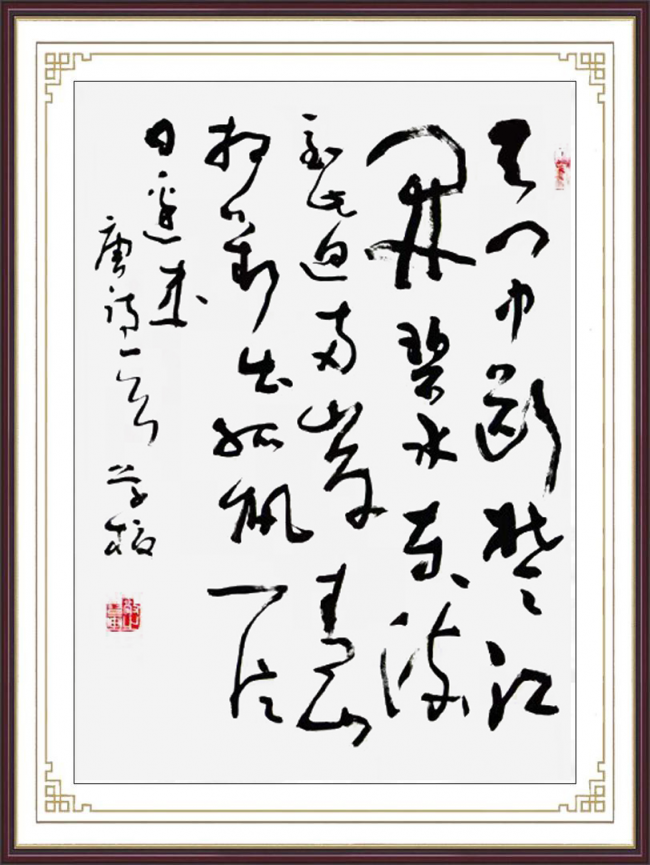 天门中断楚江
開碧水东流
至此迴两岸青山
相对出孤帆一片
日边来
唐诗一首 学